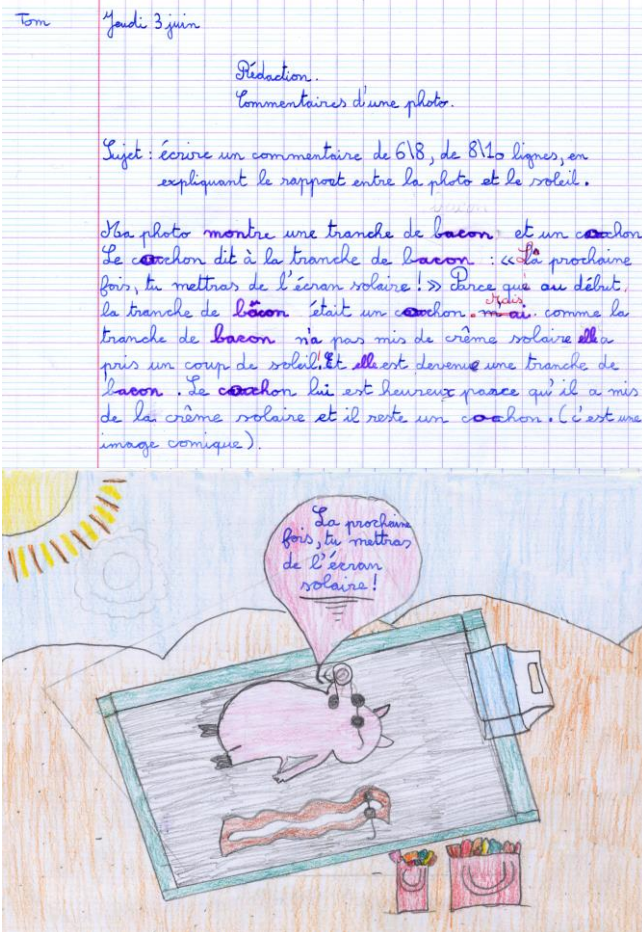 Tom Jeudi 3 juin
Rédaction.
Commentaires d'une photo.
Sujet : écrire un commentaire de 6\8, de 8\10 lignes, en
expliquant le rapport entre la photo et le soleil.
Ma photo montre une tranche de bacon et un cochon
Le cochon dit à la tranche de bacon : «La prochaine
fois, tu mettras de l'écran solaire !» Parce que au début,
la tranche de bacon était un cochon. Mais comme la
tranche de bacon n'a pas mis de crême solaire elle a
pris un coup de soleil! Et elle est devenue une tranche de
bacon. Le cochon lui est heureux parce qu'il a mis
de la crême solaire et il reste un cochon. (c'est une
image comique).
La prochaine
fois, tu mettras
de l'écran
solaire !